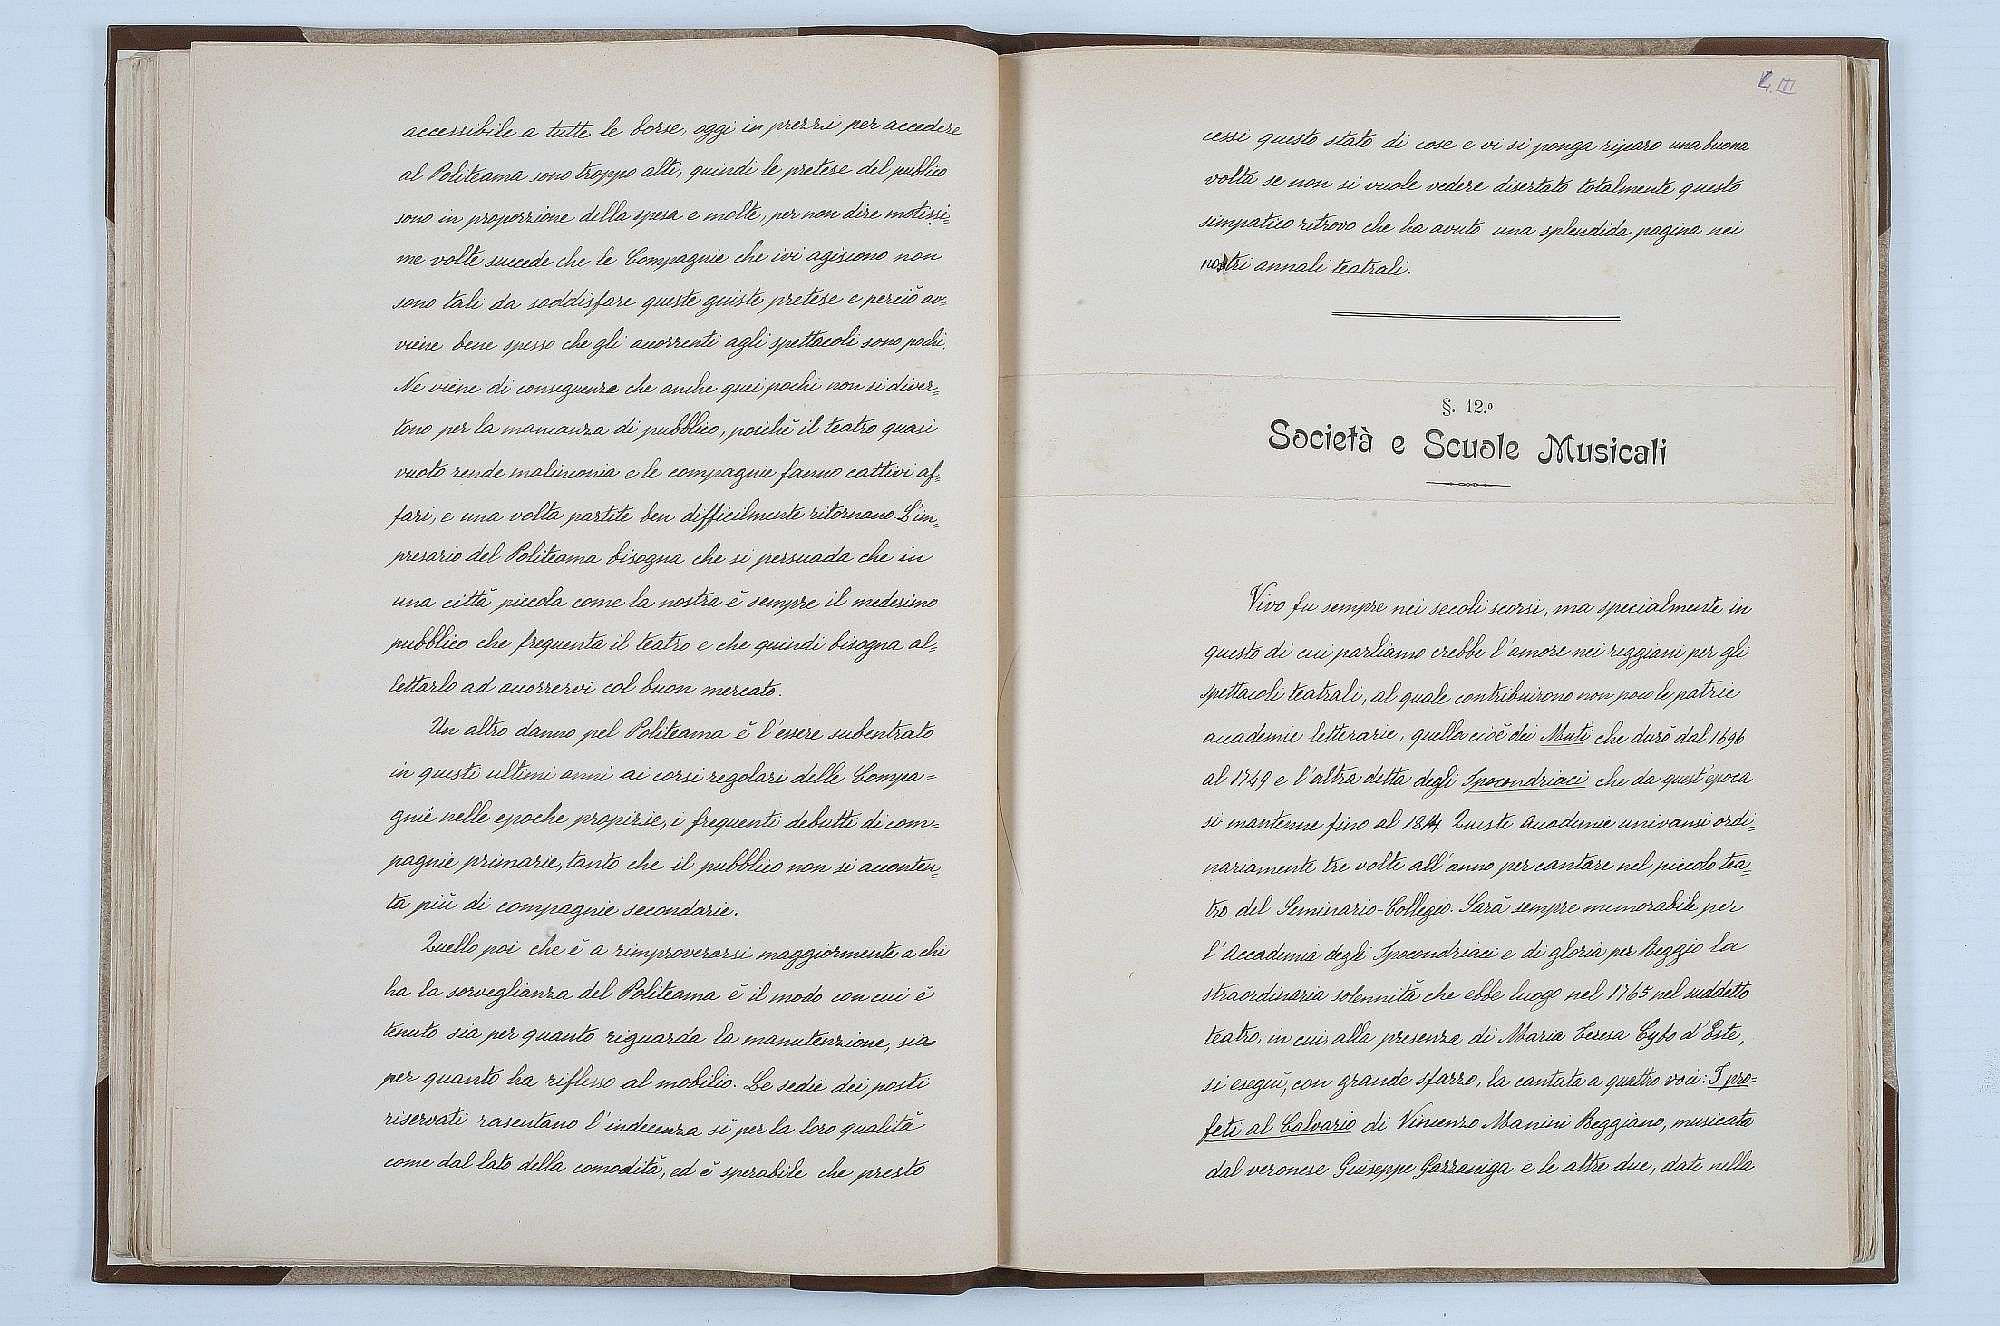 accessibile a tutte le borse, oggi in prezzi per accedere
al Politeama sono troppo alti, quindi le pretese del pubblico
sono in proporzione della spesa e molte, per non dire motissi=
me volte succede che le Compagnie che ivi agiscono non
sono tali da soddisfare queste guiste pretese e perciò av=
viene bene spesso che gli accorrenti agli spettacoli sono pochi.
Ne viene di conseguenza che anche quei pochi non si diver=
tono per la mancanza di pubblico, poichè il teatro quasi
vuoto rende malinconia e le compagnie fanno cattivi af=
fari, e una volta partite ben difficilmente ritornano. L'im=
presario del Politeama bisogna che si persuada che in
una città piccola come la nostra è sempre il medesimo
pubblico che frequenta il teatro e che quindi bisogna al=
lettarlo ad accorrervi col buon mercato.
Un altro danno pel Politeama è l'essere subentrato
in questi ultimi anni ai corsi regolari delle Compa=
gnie nelle epoche propizie, i frequenti debutti di com=
pagnie primarie, tanto che il pubblico non si acconten=
ta più di compagnie secondarie.
Quello poi che è a rimproverarsi maggiormente a chi
ha la sorveglianza del Politeama è il modo con cui è
tenuto sia per quanto riguarda la manutenzione, sia
per quanto ha riflesso al mobilio. Le sedie dei posti
riservati rasentano l'indecenza sì per la loro qualità
come dal lato della comodità, ed è sperabile che presto
cessi questo stato di cose e vi si ponga riparo una buona
volta se non si vuole vedere disertato totalmente questo
simpatico ritrovo che ha avuto una splendida pagina nei
nostri annali teatrali.
§. 12.º
Società e Scuole Musicali
Vivo fu sempre nei secoli scorsi, ma specialmente in
questo di cui parliamo crebbe l'amore nei reggiani per gli
spettacoli teatrali, al quale contribuirono non poco le patrie
accademie letterarie, quella cioè dei Muti che durò dal 1696
al 1749 e l'altra detta degli Ipocondriaci che da quest'epoca
si mantenne fino al 1814. Queste Accademie univansi ordi=
nariamente tre volte all'anno per cantare nel piccolo tea=
tro del Seminario-Collegio. Sarà sempre memorabile per
l'Accademia degli Ipocondriaci e di gloria per Reggio la
straordinaria solennità che ebbe luogo nel 1765 nel suddetto
teatro, in cui, alla presenza di Maria Teresa Cybo d'Este,
si eseguì, con grande sfarzo, la cantata a quattro voci: I pro=
feti al Calvario di Vincenzo Manini Reggiano, musicata
dal veronese Giuseppe Gazzaniga e le altre due, date nella